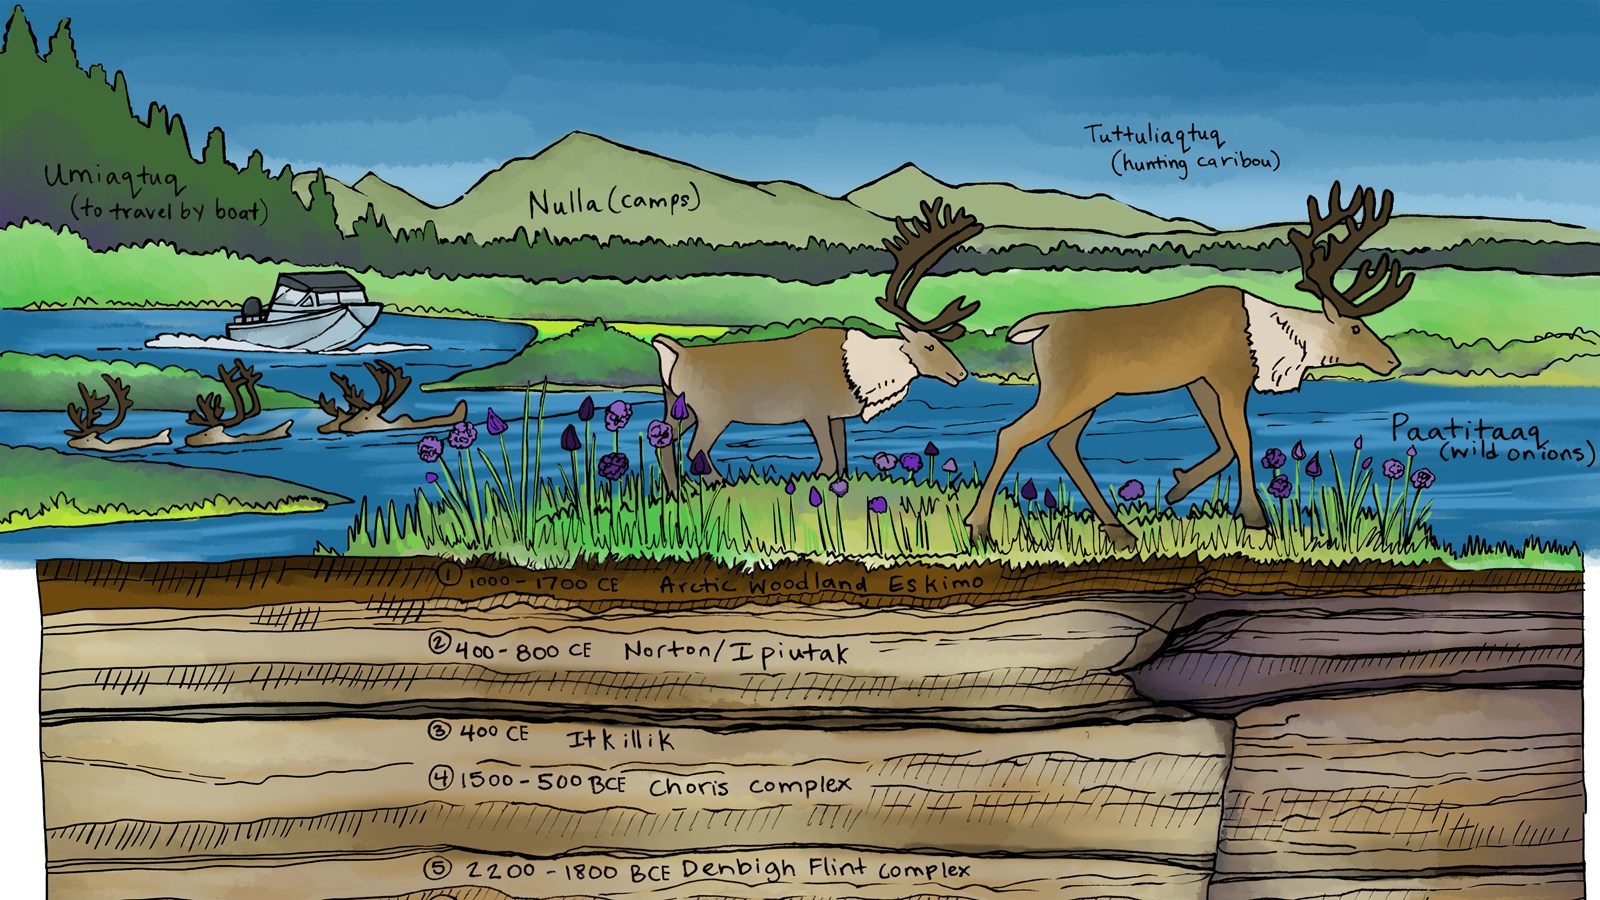 Tuttuliaqtuq
(hunting caribou)
Umiaqtuq
(to travel by boat)
Nulla (camps)
Paatitaaq
(wild onions)
① 1000-1700 CE Arctic Woodland Eskimo
② 400-800 CE Norton/Ipiutak
③ 400 CE Itkillik
④ 1500-500 BCE Choris complex
⑤ 2200-1800 BCE Denbigh Flint Complex